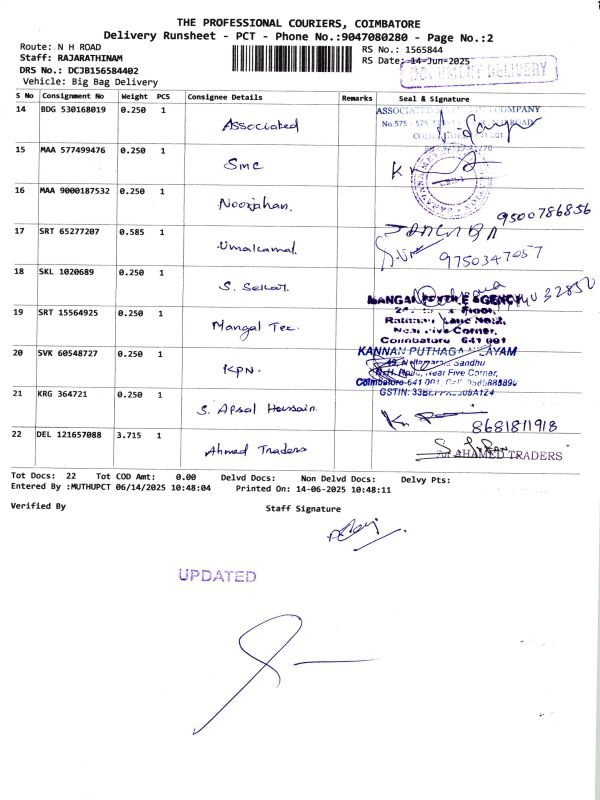 THE PROFESSIONAL COURIERS, COIMBATORE
Delivery Runsheet - PCT - Phone No.:9047080280 - Page No.:2
Route: N H ROAD
RS No.: 1565844
Staff: RAJARATHINAM
RS Date: 14-Jun-2025
DRS No.: DCJB156584402
DOCUMENT DELIVERY
Vehicle: Big Bag Delivery
S No Consignment No Weight PCS Consignee Details Remarks Seal & Signature
14 BDG 530168019 0.250 1 Associated
ASSOCIATED COMPANY
No.575 - 575
15 MAA 577499476 0.250 1 Smc
16 MAA 9000187532 0.250 1 Noorjahan.
9500786856
17 SRT 65277207 0.585 1 Umakamal
9750347057
18 SKL 1020689 0.250 1 S. Sekar.
19 SRT 15564925 0.250 1 Mangal Tex.
MANGAL TEXTILE AGENCY
Near Five Corner,
Coimbatore 641 001
20 SVK 60548727 0.250 1 KPN.
KANNAN PUTHAGA NILAYAM
N.H. Road, Near Five Corner,
Coimbatore-641 001,
21 KRG 364721 0.250 1 S. Afsal Hussain.
8681811918
22 DEL 121657088 3.715 1 Ahmed Traders
For AHAMED TRADERS
Tot Docs: 22 Tot COD Amt: 0.00 Delvd Docs: Non Delvd Docs: Delvy Pts:
Entered By :MUTHUPCT 06/14/2025 10:48:04 Printed On: 14-06-2025 10:48:11
Verified By Staff Signature
UPDATED